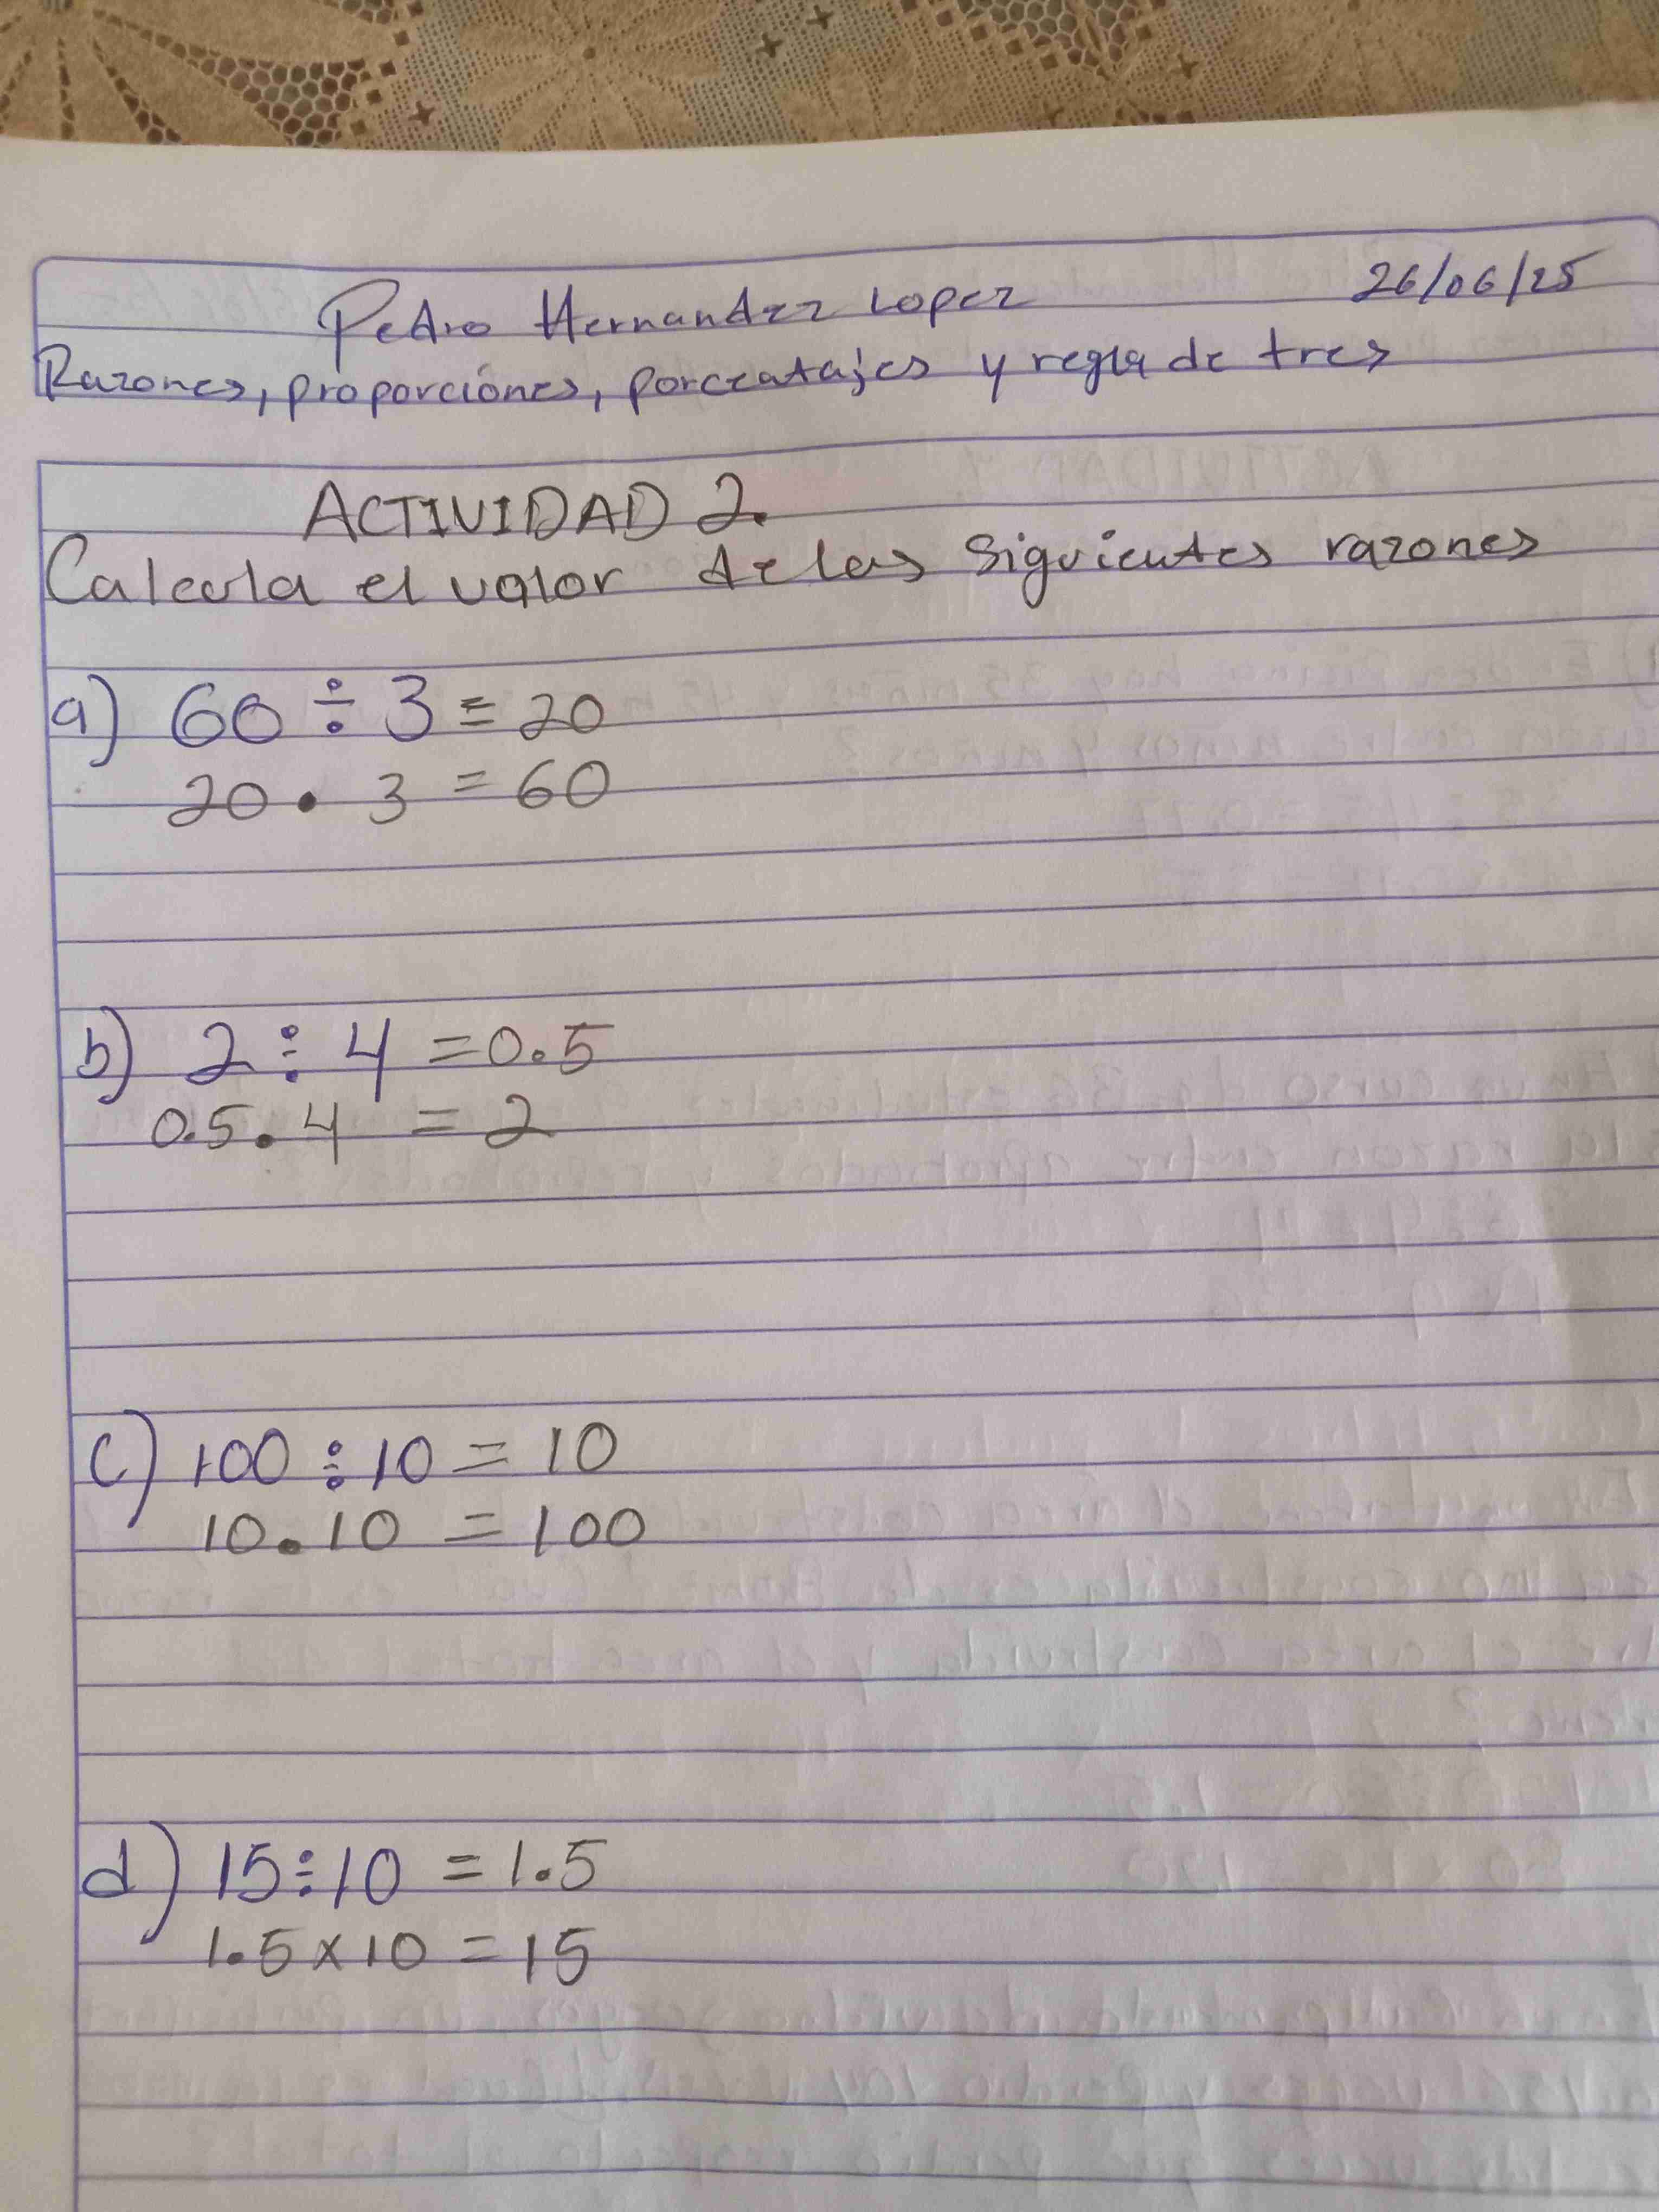 Pedro Hernandez Lopez 26/06/25
Razones, proporciones, porcentajes y regla de tres
ACTIVIDAD 2.
Calcula el valor de las siguientes razones
a) 60 ÷ 3 = 20
20 • 3 = 60
b) 2 ÷ 4 = 0.5
0.5 • 4 = 2
c) 100 ÷ 10 = 10
10 • 10 = 100
d) 15 ÷ 10 = 1.5
1.5 x 10 = 15